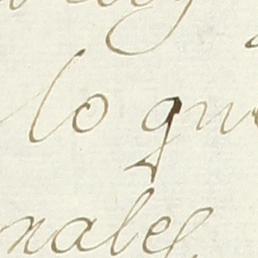 lo que
nales